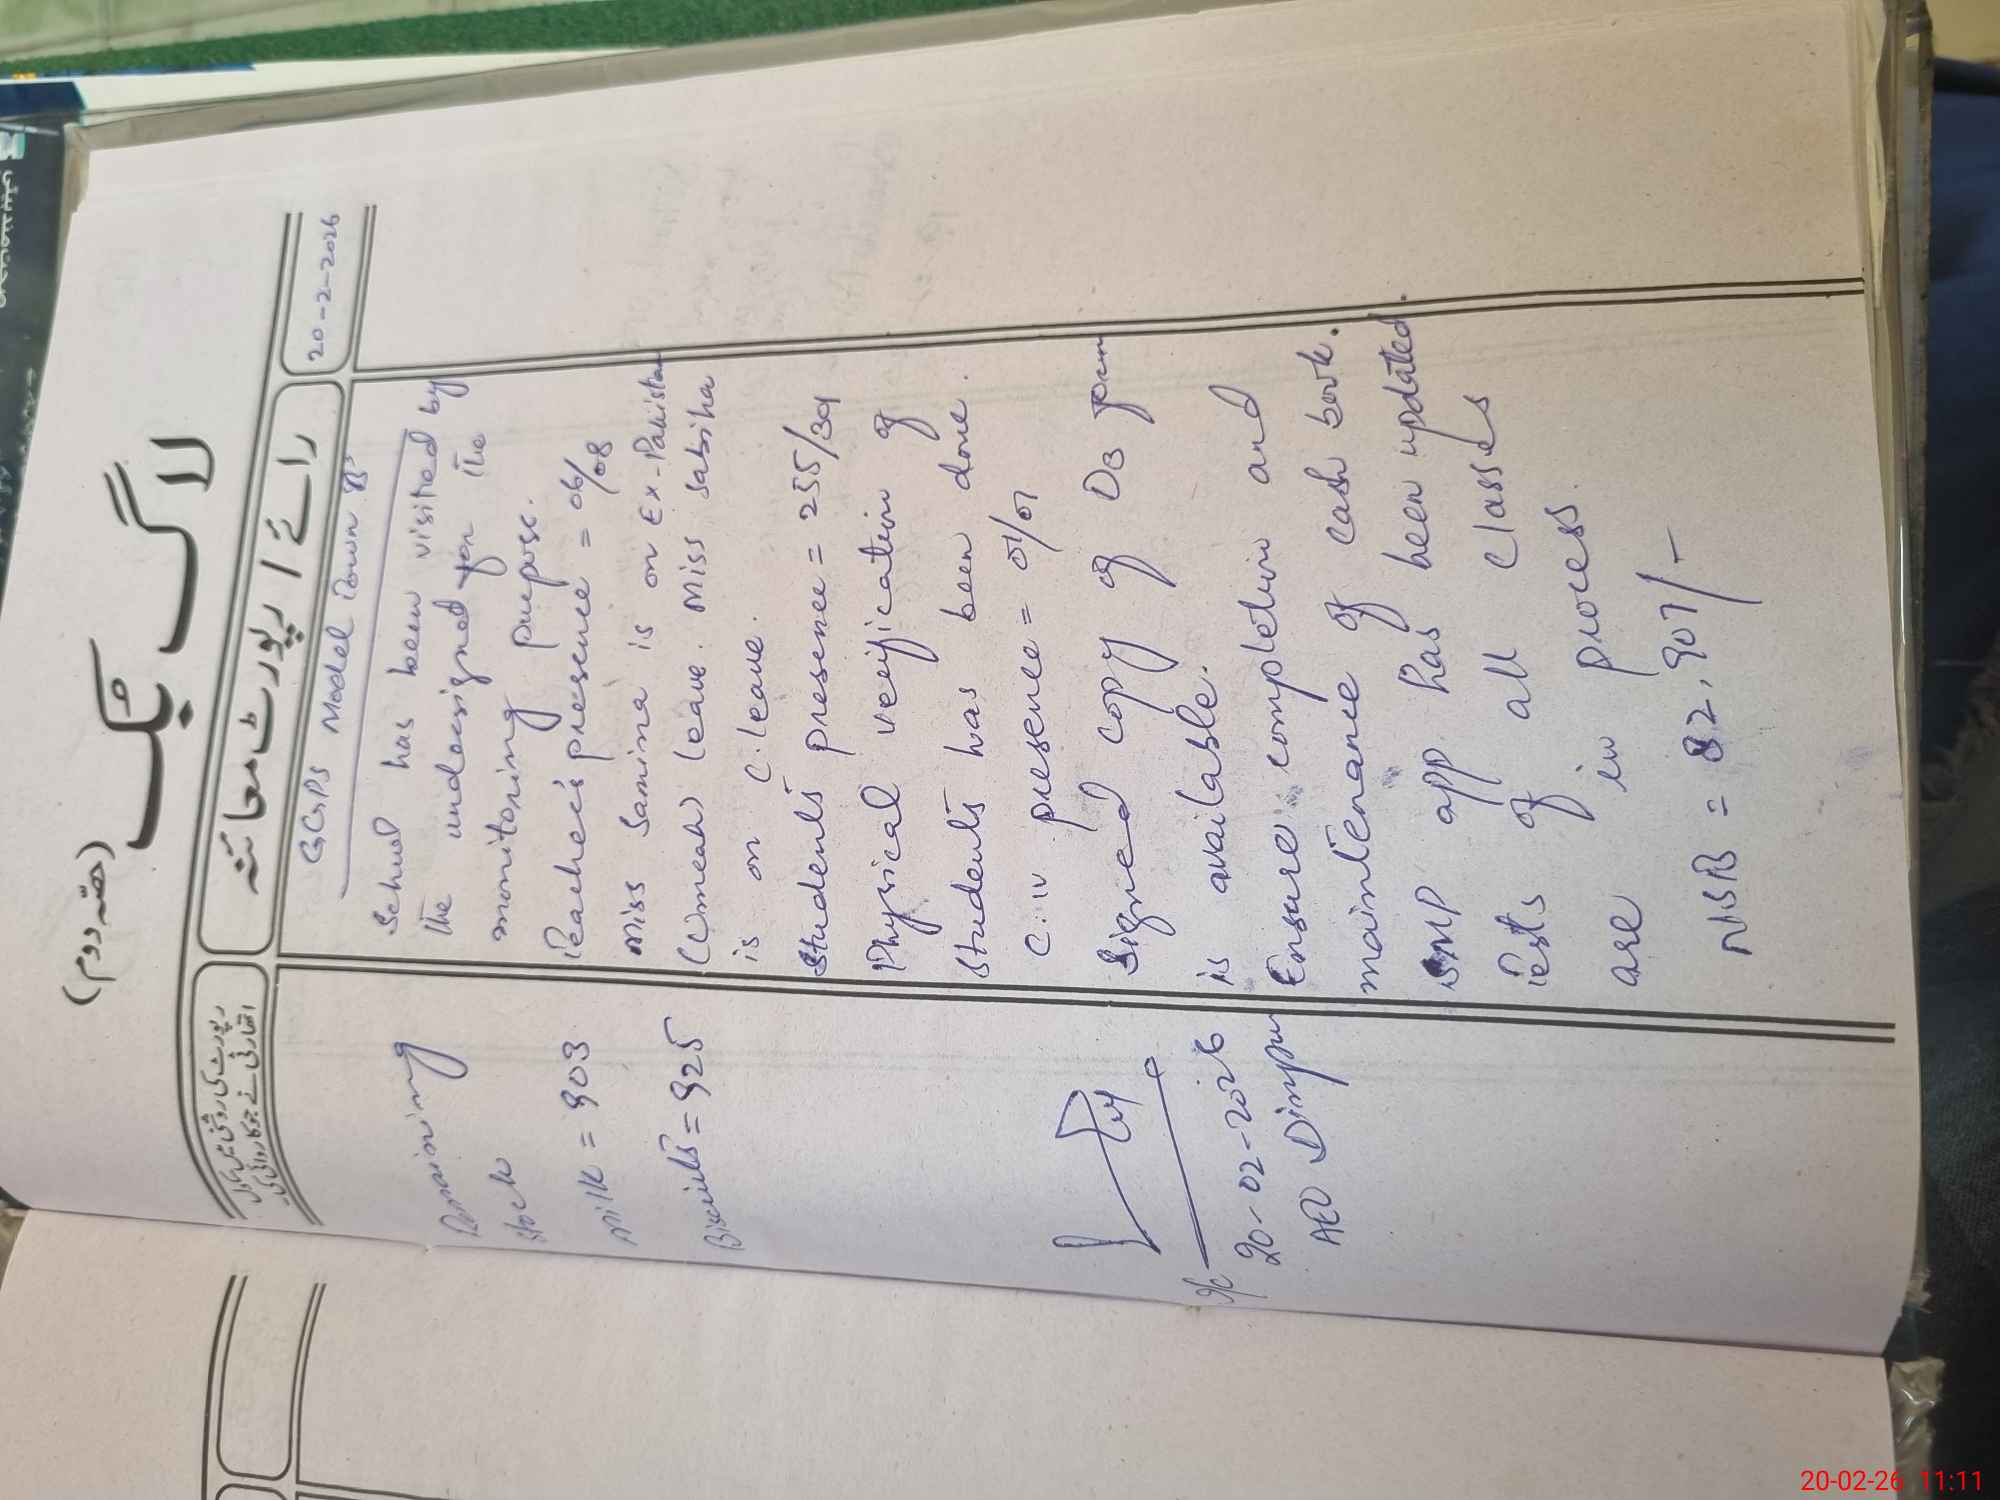 (حصّہ دوم)
لاگ بک
رپورٹ کی روشنی میں سکول
اتھارٹی نے جو کاروائی کی
رائے / رپورٹ معائنہ
20-2-2026
GGPS Model Town
School has been visited by
the undersigned for the
monitoring purpose.
Teacher's presence = 06/08
Miss Samina is on Ex-Pakistan
leave. Miss Sabiha
is on C.leave.
Students presence = 255/
Physical verification of
students has been done.
C.iv presence = 01/01
Signed copy of D3 form
is available.
Ensure completion and
maintenance of cash book.
SMP app. has been updated
Tests of all classes
are in process.
NSB = 82,907/-
Remaining
stock
milk = 903
Biscuits = 925
20-02-2026
AEO
20-02-26 11:11